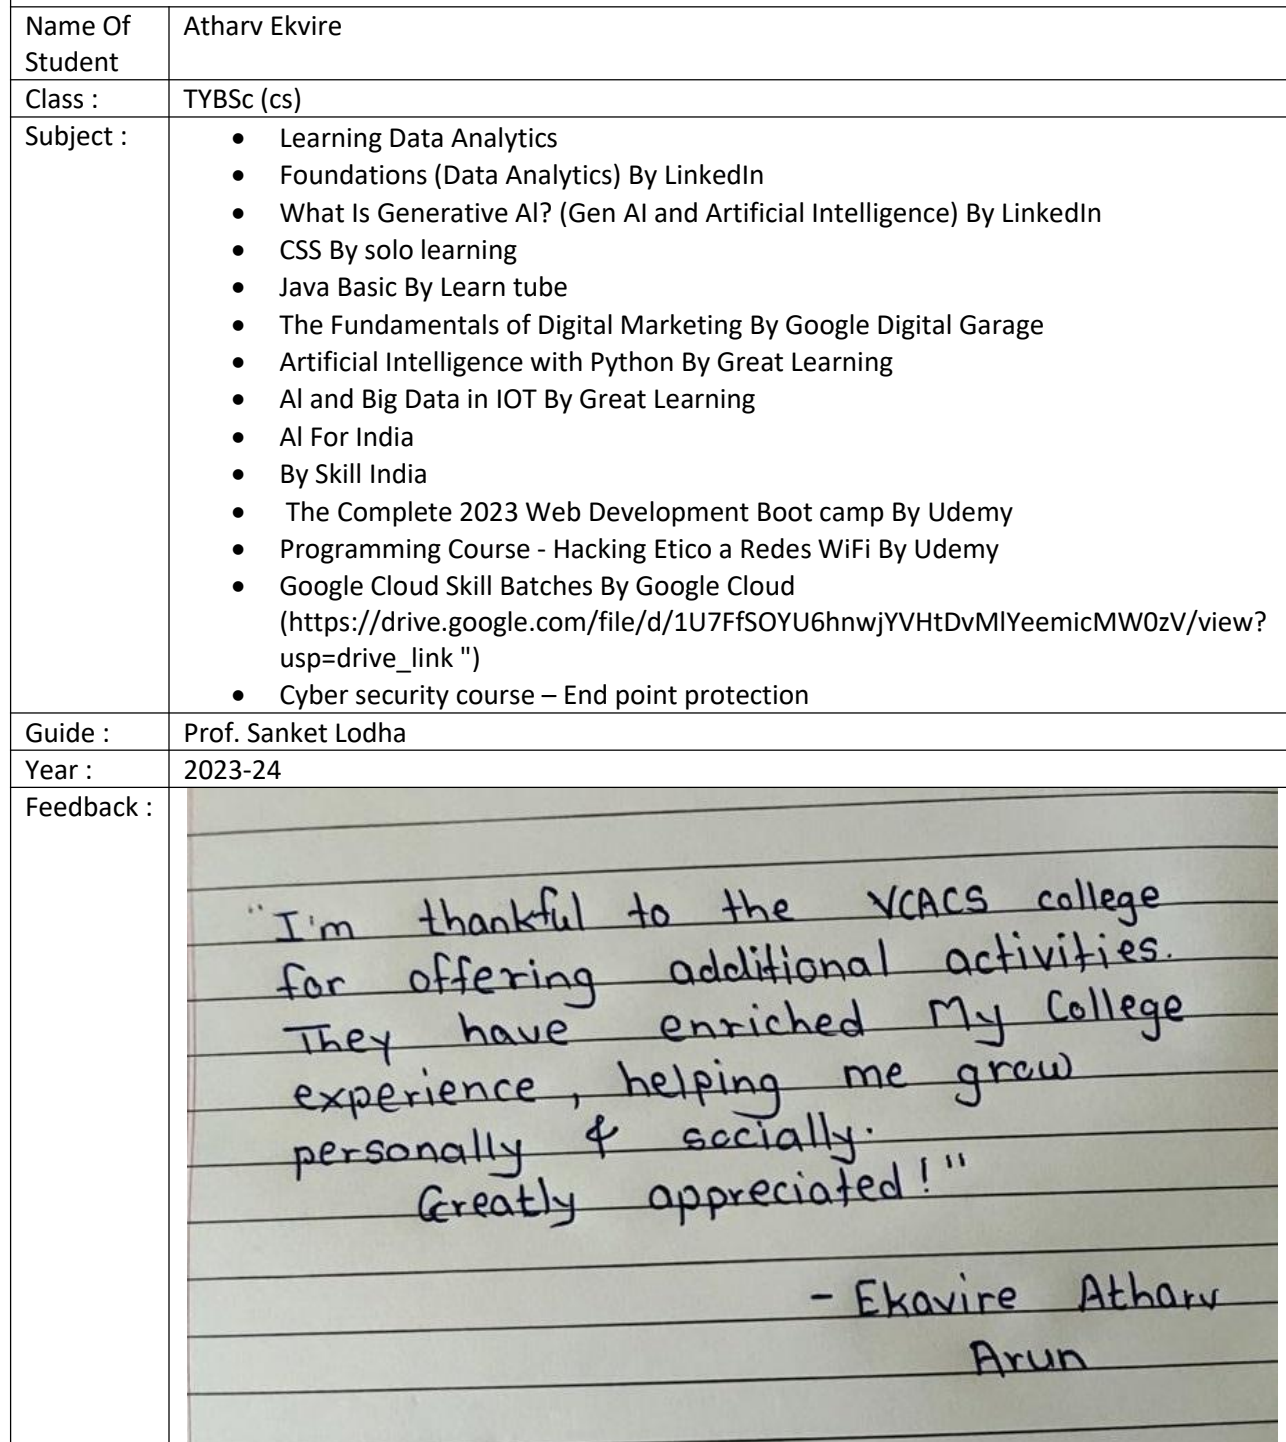 Name Of
Student
Atharv Ekvire
Class :
TYBSc (cs)
Subject :
• Learning Data Analytics
• Foundations (Data Analytics) By LinkedIn
• What Is Generative Al? (Gen AI and Artificial Intelligence) By LinkedIn
• CSS By solo learning
• Java Basic By Learn tube
• The Fundamentals of Digital Marketing By Google Digital Garage
• Artificial Intelligence with Python By Great Learning
• Al and Big Data in IOT By Great Learning
• Al For India
• By Skill India
• The Complete 2023 Web Development Boot camp By Udemy
• Programming Course - Hacking Etico a Redes WiFi By Udemy
• Google Cloud Skill Batches By Google Cloud
(https://drive.google.com/file/d/1U7FfSOYU6hnwjYVHtDvMlYeemicMW0zV/view?
usp=drive_link ")
• Cyber security course – End point protection
Guide :
Prof. Sanket Lodha
Year :
2023-24
Feedback :
"I'm thankful to the VCACS college
for offering additional activities.
They have enriched My College
experience, helping me grow
personally & socially.
Greatly appreciated!"
- Ekavire Atharv
Arun